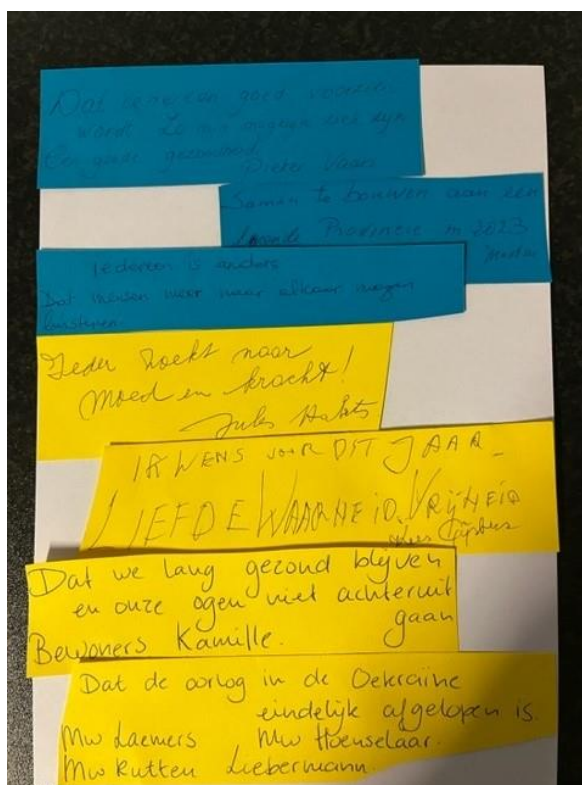 Dat iedereen goed voorzien
wordt Zo mogen wij zijn
Een goede gezondheid
Pieter Vaan
Samen te bouwen aan een
Provincie in 2023
Martin
Iedereen is anders
Dat mensen meer naar elkaar mogen
luisteren.
Ieder zoekt naar
moed en kracht!
Jules
IK WENS voor DIT JAAR
LIEFDE WAARHEID VRIJHEID
Dat we lang gezond blijven
en onze ogen niet achteruit
gaan
Bewoners Kamille.
Dat de oorlog in de Oekraine
eindelijk afgelopen is.
Mw Laemers Mw Hoenselaar.
Mw Rutten Liebermann.